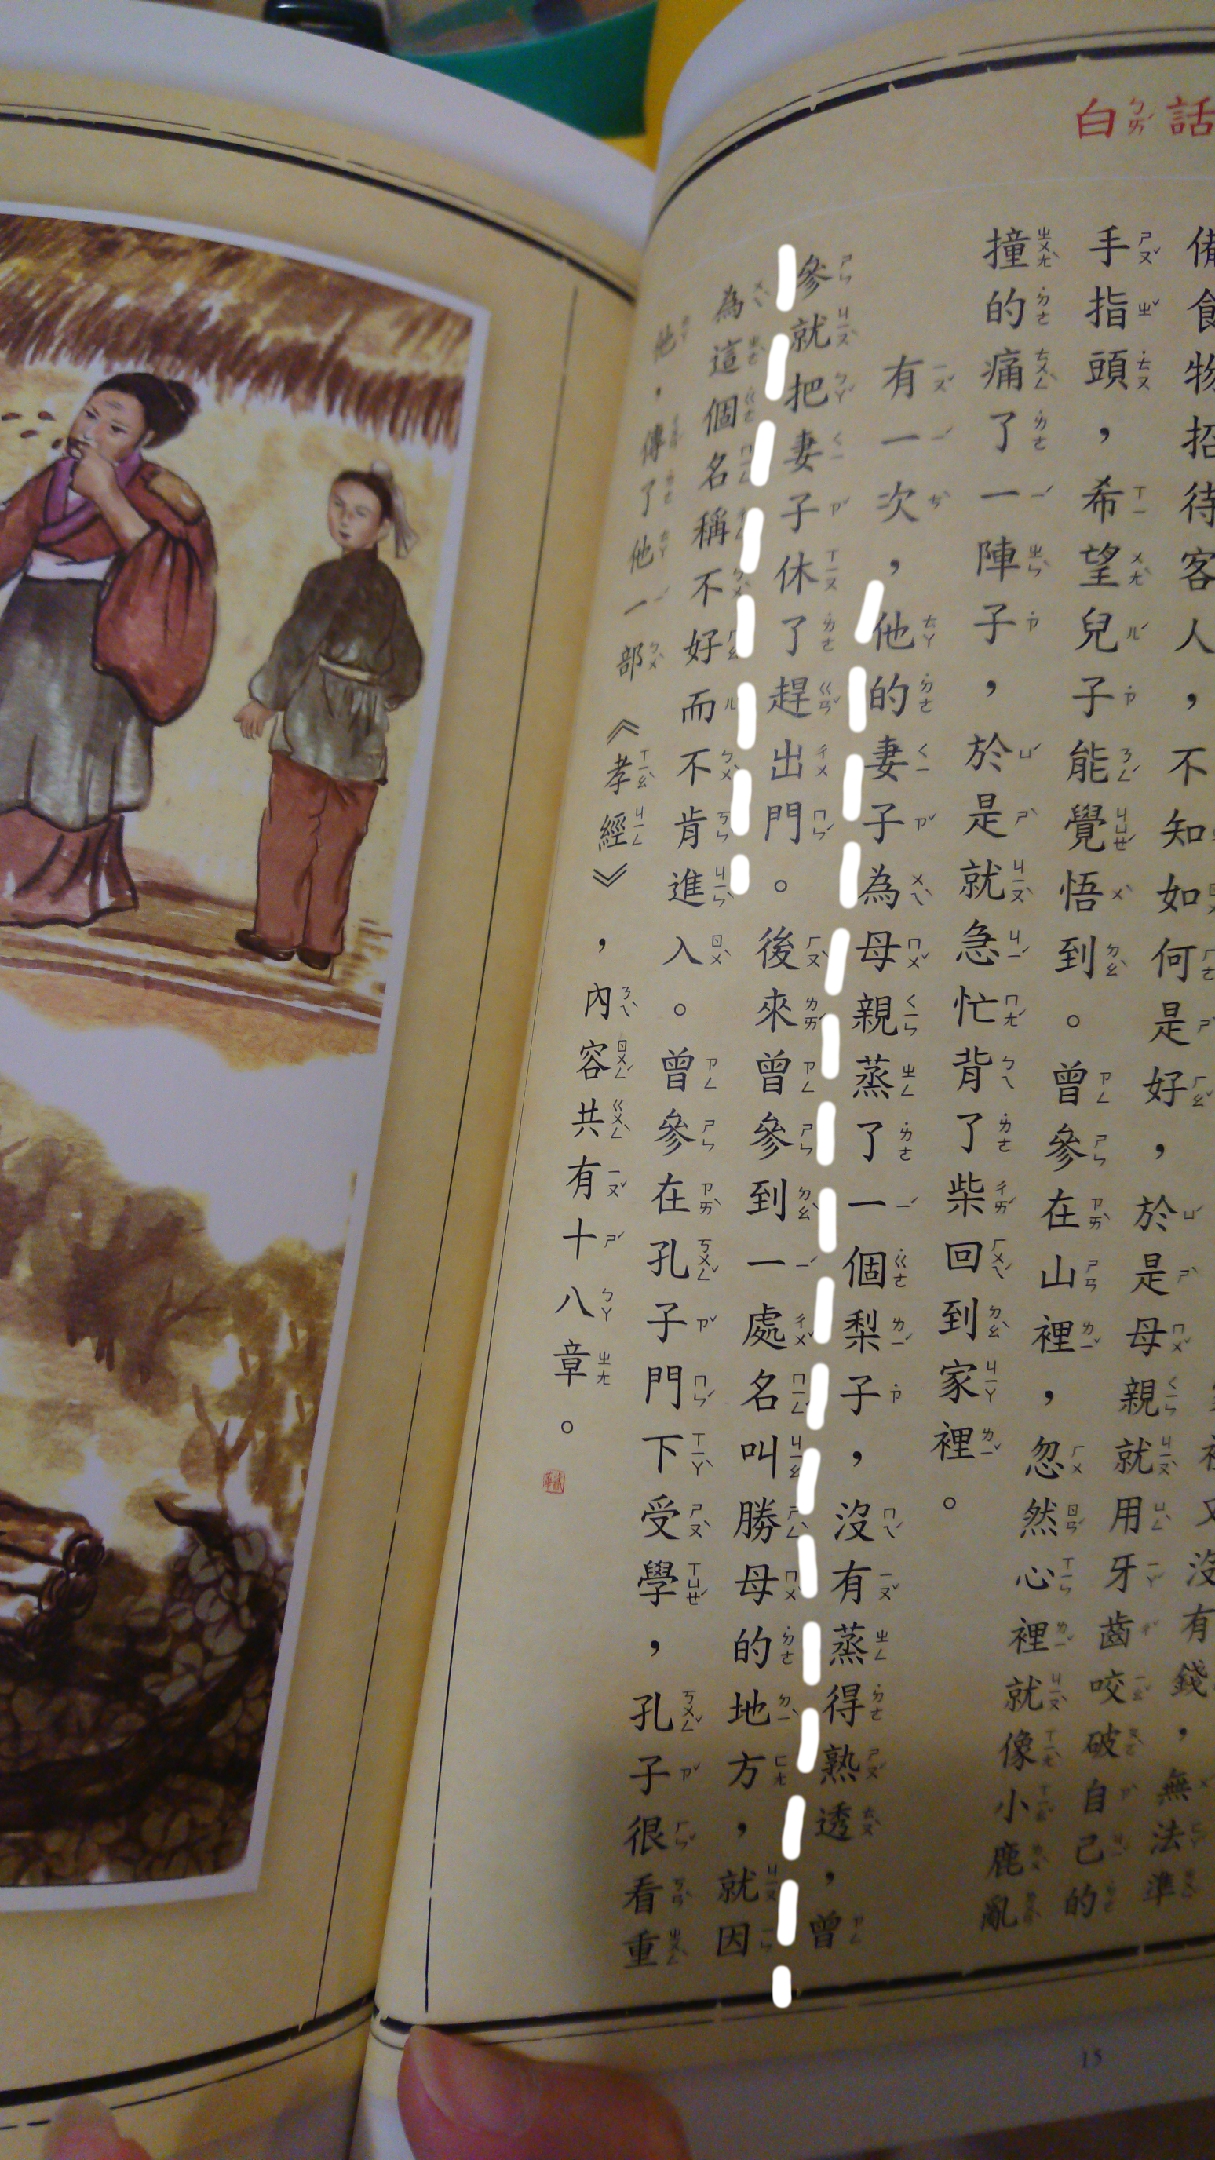 白話
備食物招待客人，不知如何是好，於是母親就用牙齒咬破自己的
手指頭，希望兒子能覺悟到。曾參在山裡，忽然心裡就像小鹿亂
撞的痛了一陣子，於是就急忙背了柴回到家裡。
有一次，他的妻子為母親蒸了一個梨子，沒有蒸得熟透，曾
參就把妻子休了趕出門。後來曾參到一處名叫勝母的地方，就因
為這個名稱不好而不肯進入。曾參在孔子門下受學，孔子很看重
他，傳了他一部《孝經》，內容共有十八章。
15